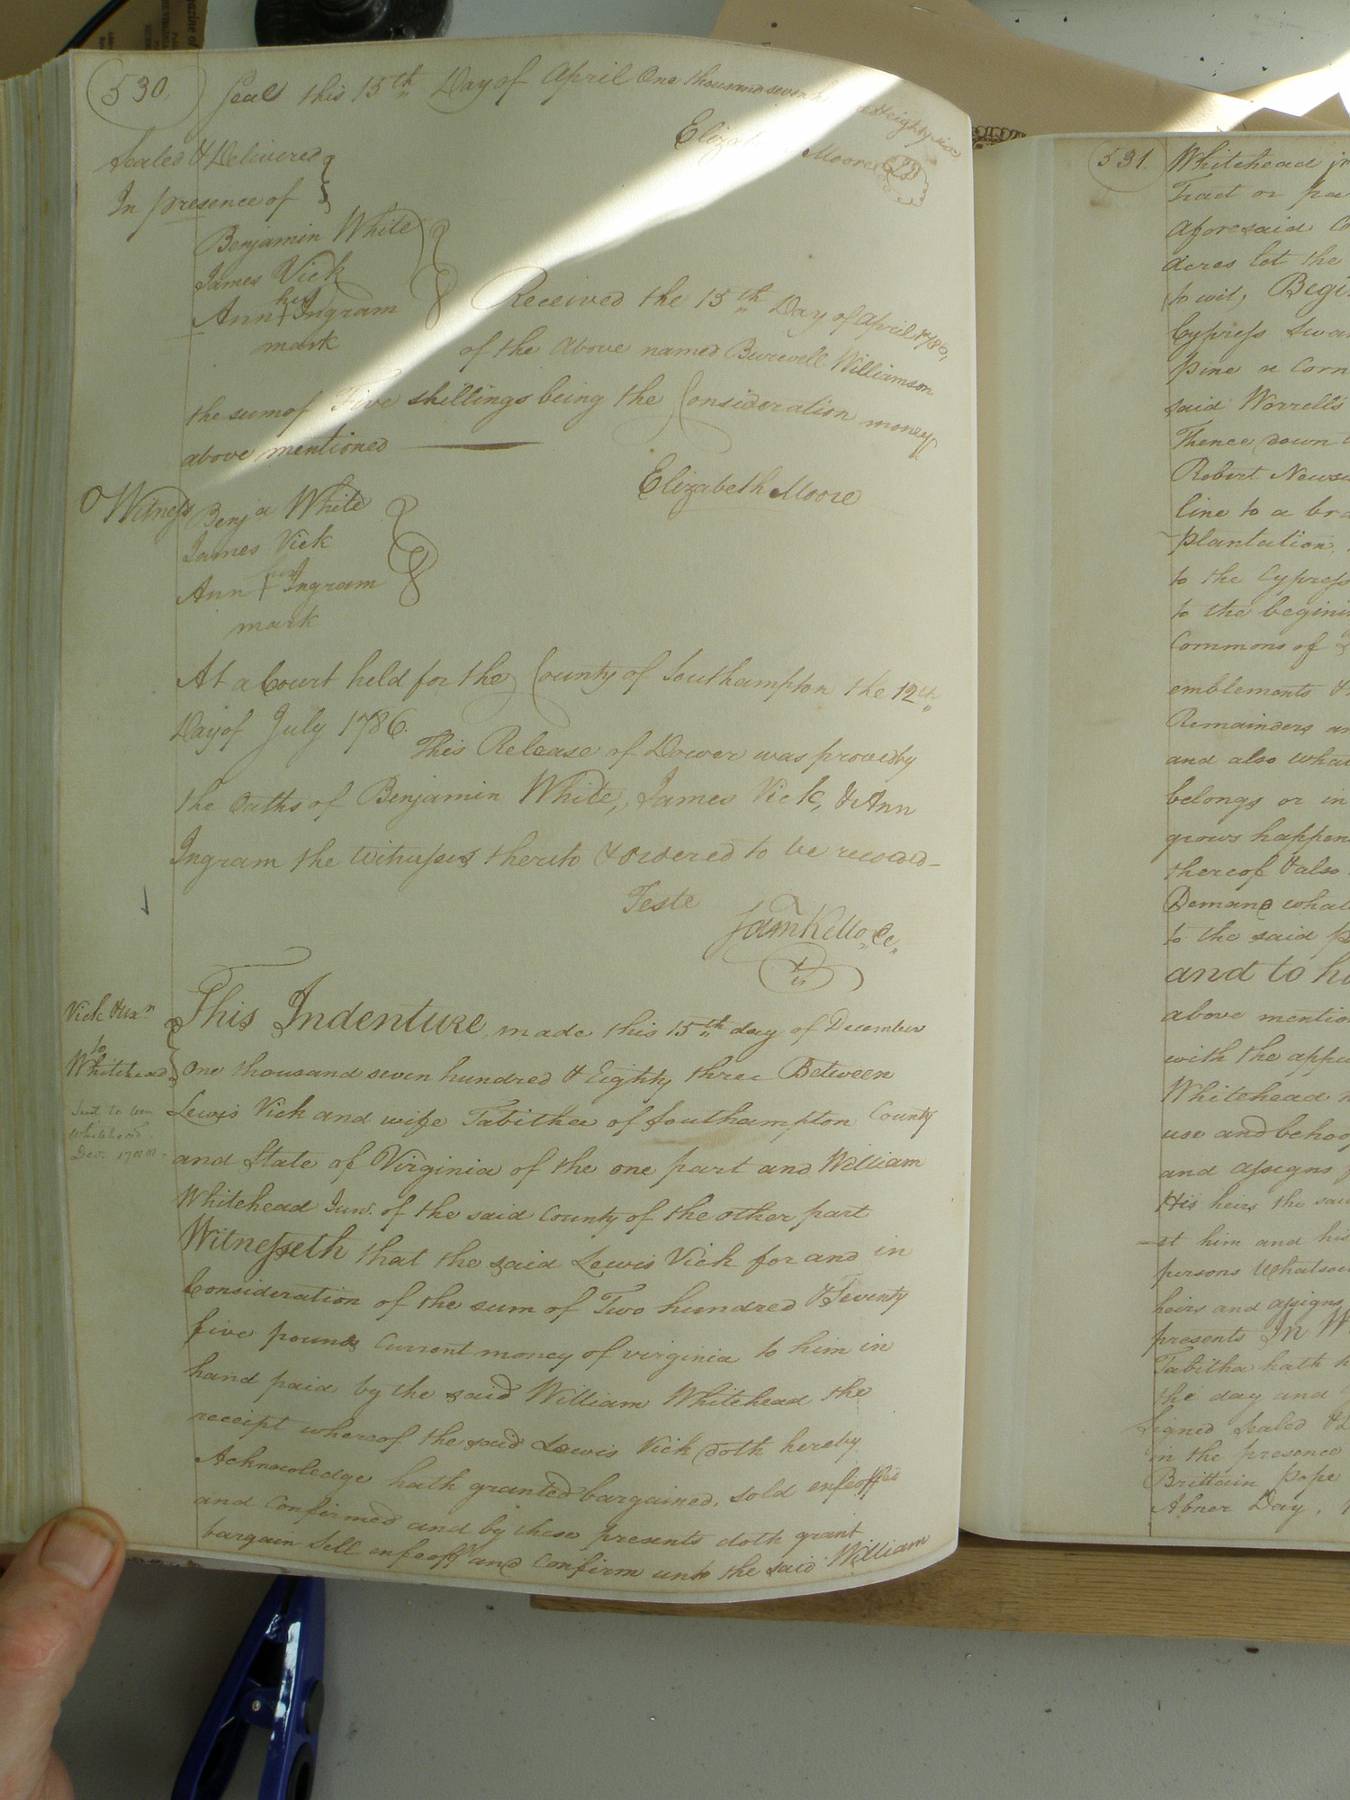 530
Seal this 15th Day of April One thousand seven & Eighty six
Elizabeth Moore LS
Sealed & Delivered
In presence of
Benjamin White
James Vick
her
Ann + Ingram
mark
Received the 15th Day of April 1786,
of the above named Burwell Williamson
the sum of Five shillings being the Consideration money
above mentioned
Elizabeth Moore
Witness Benja White
James Vick
her
Ann + Ingram
mark
At a Court held for the County of Southampton the 12th
Day of July 1786.
This Release of Dower was proved by
the Oaths of Benjamin White, James Vick, & Ann
Ingram the witnesses thereto & ordered to be record-
Teste
Sam Kello Cl.
Vick & ux
to
Whitehead
Sent to
Whitehead
Dec.
This Indenture made this 15th day of December
One thousand seven hundred & Eighty three Between
Lewis Vick and wife Tabitha of Southampton County
and State of Virginia of the one part and William
Whitehead Junr. of the said County of the other part
Witnesseth that the said Lewis Vick for and in
Consideration of the sum of Two hundred & Seventy
five pounds Current money of virginia to him in
hand paid by the said William Whitehead the
receipt whereof the said Lewis Vick doth hereby
Acknowledge hath granted bargained, sold enfeoffed
and Confirmed and by these presents doth grant
bargain Sell enfeoff and Confirm unto the said William
531
Whitehead
Tract or
Aforesaid
acres let the
to wit, Begi
Cypress Swa
Pine a Corn
said Worrell's
Thence down
Robert Newso
line to a bra
Plantation
to the Cypress
to the begini
Commons of
emblements
Remainders an
and also what
belongs or in
grows happen
thereof & also
Demand what
to the said
and to h
above mentio
with the appu
Whitehead
use and behoo
and assigns
His heirs the said
-st him and his
persons Whatsoe
heirs and assigns
presents In W
Tabitha hath h
the day and
Signed Sealed & D
in the presence
Brittain Pope
Abner Day,